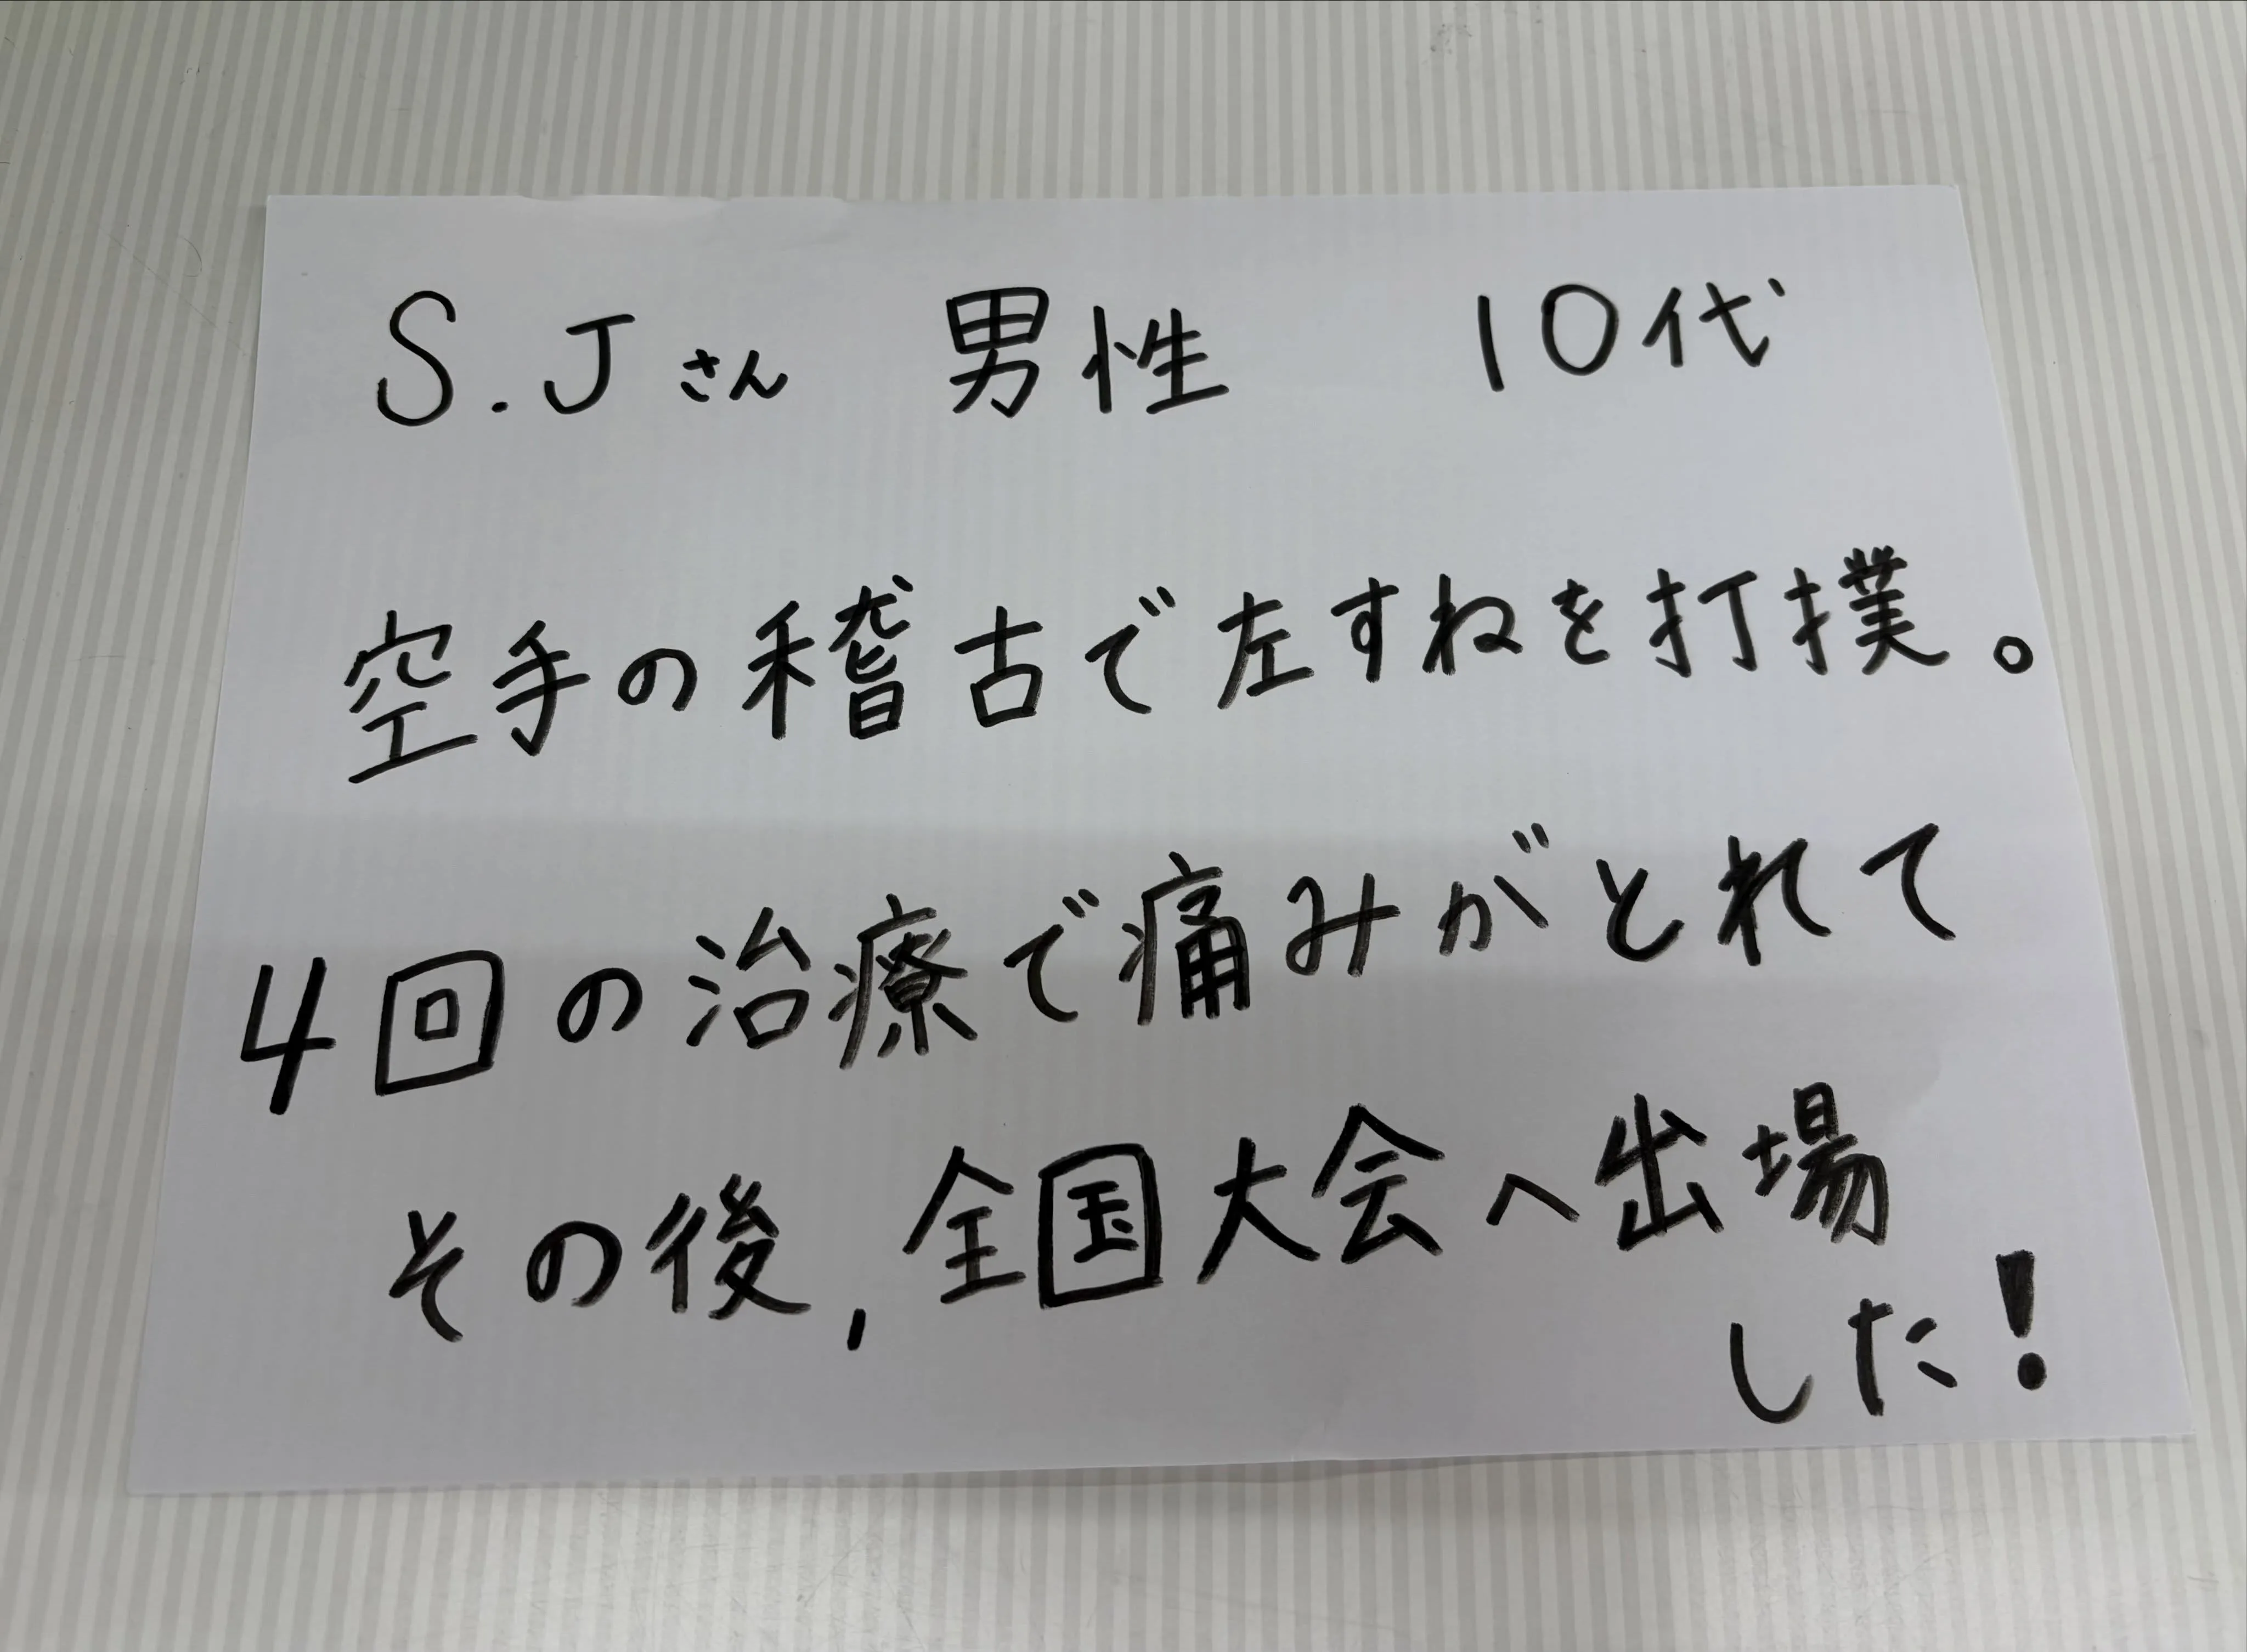 S.Jさん 男性 10代
空手の稽古で左すねを打撲。
4回の治療で痛みがとれて
その後,全国大会へ出場
した!